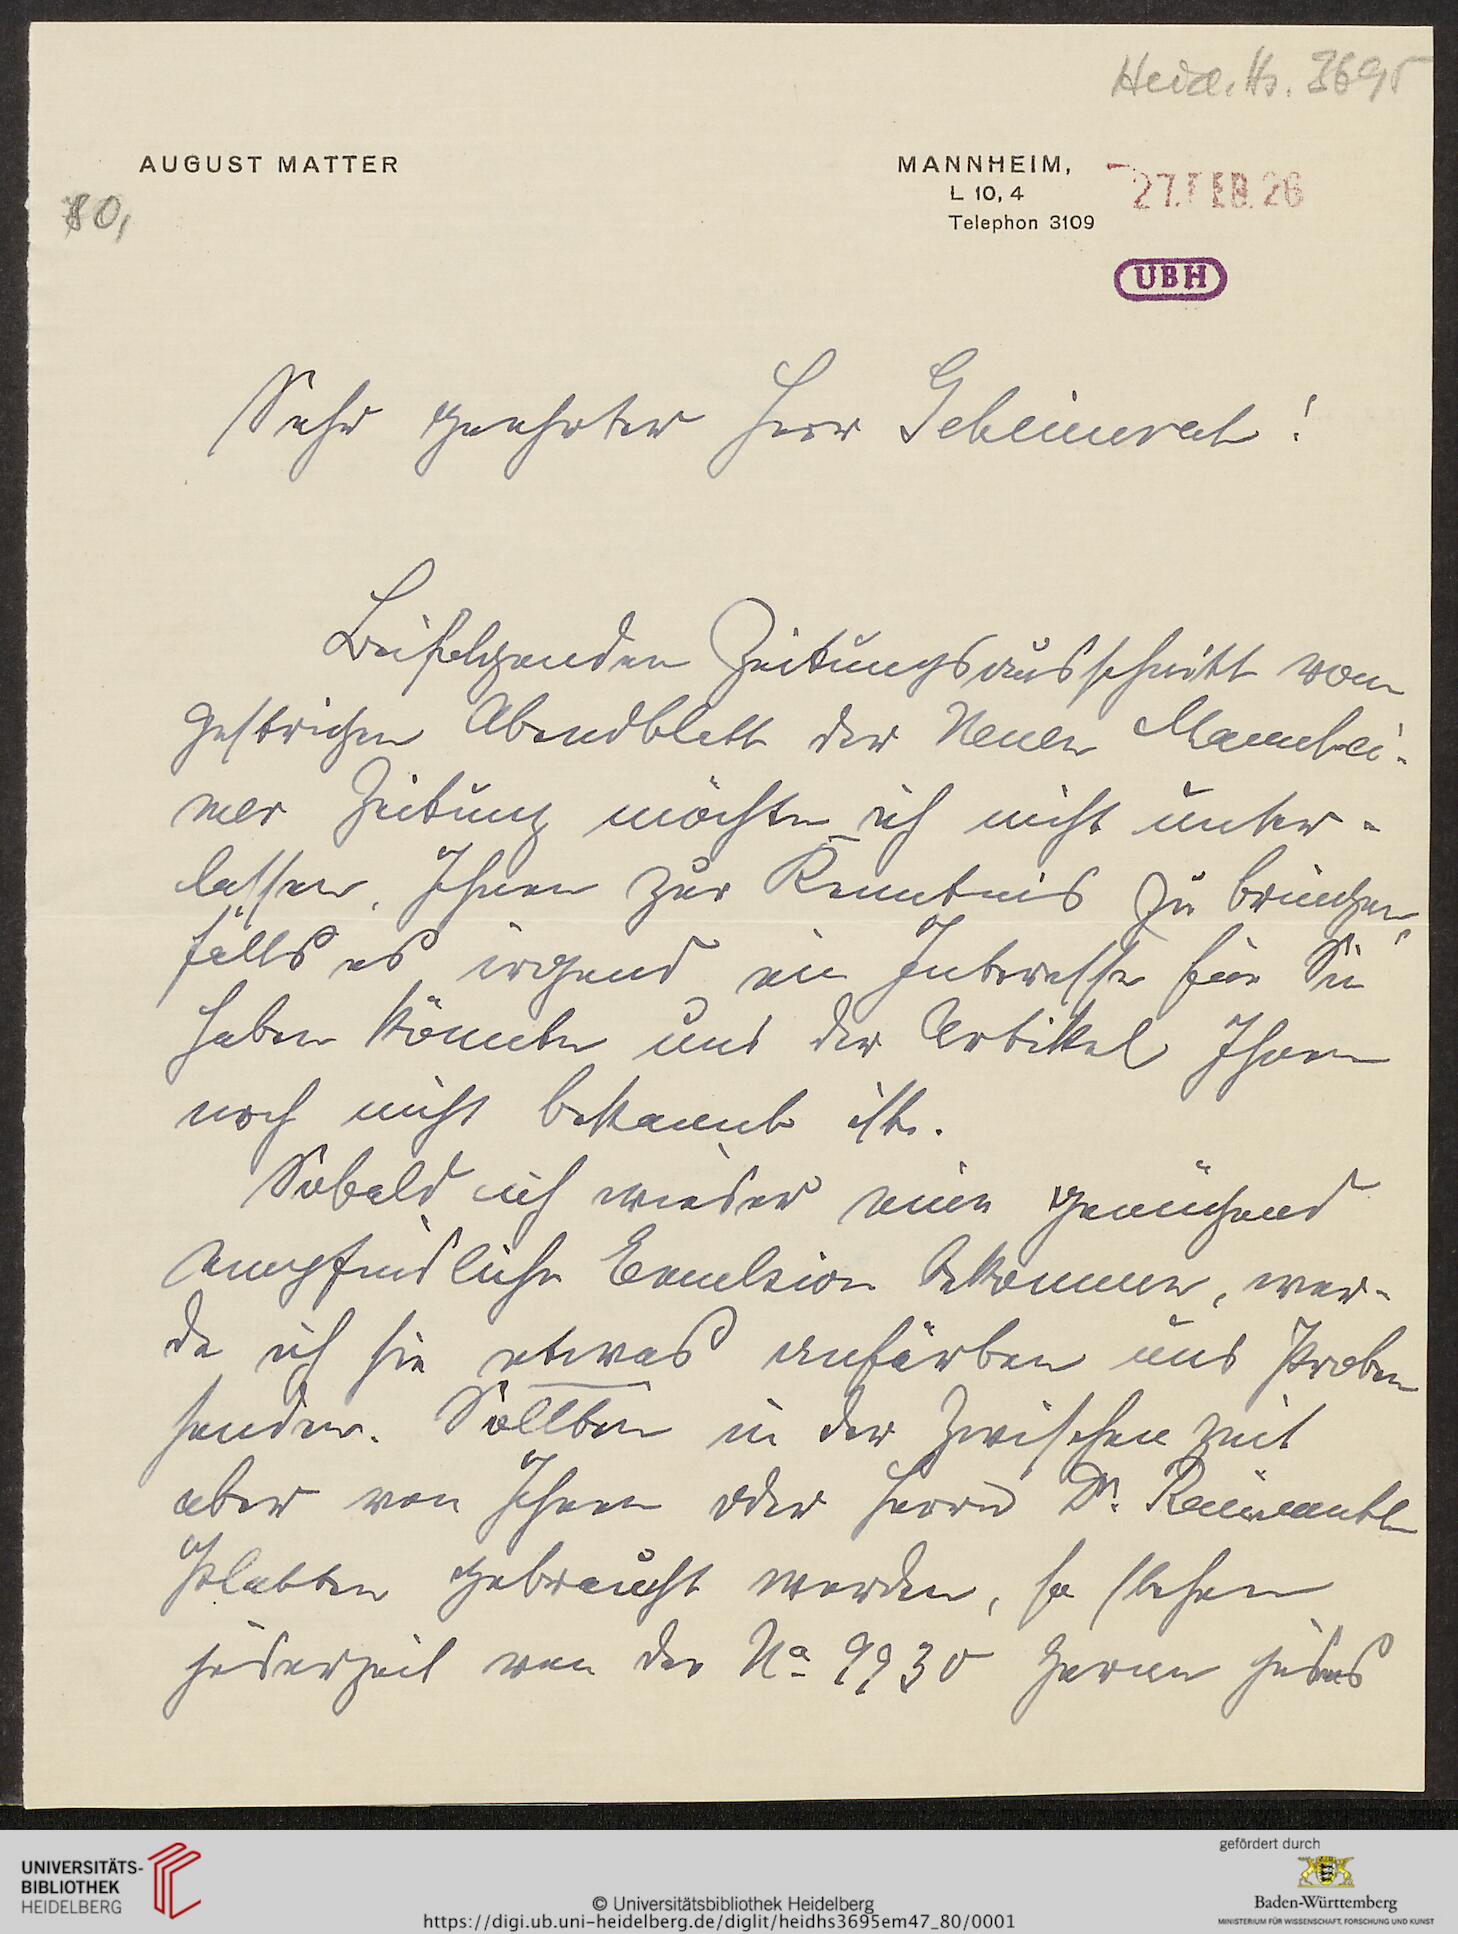 Heid. Hs. 3695
AUGUST MATTER
MANNHEIM,
27. FEB. 26
L 10, 4
Telephon 3109
80,
UBH
Sehr geehrter Herr Geheimrat!
Beifolgenden Zeitungsausschnitt vom
gestrigen Abendblatt der Neuen Mannhei-
mer Zeitung möchte ich nicht unter-
lassen, Ihnen zur Kenntnis zu bringen,
falls es irgend ein Interesse für Sie
haben könnte und der Artikel Ihnen
noch nicht bekannt ist.
Sobald ich wieder eine genügend
empfindliche Emulsion bekomme, wer-
de ich sie etwas anfärben und Proben
senden. Sollten in der Zwischenzeit
aber von Ihnen oder Herrn Dr.
Platten gebraucht werden, so stehen
jederzeit von der No 9930 gerne jedes
UNIVERSITÄTS-
BIBLIOTHEK
HEIDELBERG
© Universitätsbibliothek Heidelberg
https://digi.ub.uni-heidelberg.de/diglit/heidhs3695em47_80/0001
gefördert durch
Baden-Württemberg
MINISTERIUM FÜR WISSENSCHAFT, FORSCHUNG UND KUNST